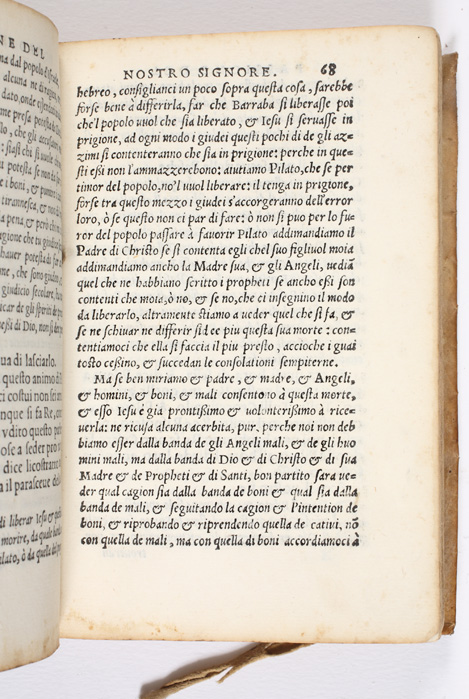 NE DEL
NOSTRO SIGNORE. 68
hebreo, consiglianci un poco sopra questa cosa, sarebbe
forse bene à differirla, far che Barraba si liberasse poi
che'l popolo vuol che sia liberato, & Iesu si seruasse in
prigione, ad ogni modo i giudei questi pochi di de gli az-
zimi si contenteranno che sia in prigione: perche in que-
sti eßi non l'ammazzerebono: aiutiamo Pilato, che se per
timor del popolo, no'l vuol liberare: il tenga in prigione,
forse tra questo mezzo i giudei s'accorgeranno dell'error
loro, ò se questo non ci par di fare: ò non si puo per lo fu-
ror del popolo passare à fauorir Pilato addimandiamo il
Padre di Christo se si contenta egli chel suo figliuol moia
addimandiamo ancho la Madre sua, & gli Angeli, vediã
quel che ne habbiano scritto i propheti se ancho eßi son
contenti che moia, ò no, & se no, che ci insegnino il modo
da liberarlo, altramente stiamo a ueder quel che si fa, &
se ne schiuar ne differir si de e piu questa sua morte: con-
tentiamoci che ella si faccia il piu presto, accioche i guai
tosto ceßino, & succedan le consolationi sempiterne.
Ma se ben miriamo & padre, & madre, & Angeli,
& homini, & boni, & mali consentono à questa morte,
& esso Iesu è gia prontißimo & volonterißimo à rice-
uerla: ne ricusa alcuna acerbita, pur, perche noi non deb
biamo esser dalla banda de gli Angeli mali, & de gli huo
mini mali, ma dalla banda di Dio & di Christo & di sua
Madre & de Propheti & di Santi, bon partito sara ue-
der qual cagion sia dalla banda de boni & qual sia dalla
banda de mali, & seguitando la cagion & l'intention de
boni, & riprobando & riprendendo quella de catiui, nõ
con quella de mali, ma con quella di boni accordiamoci à